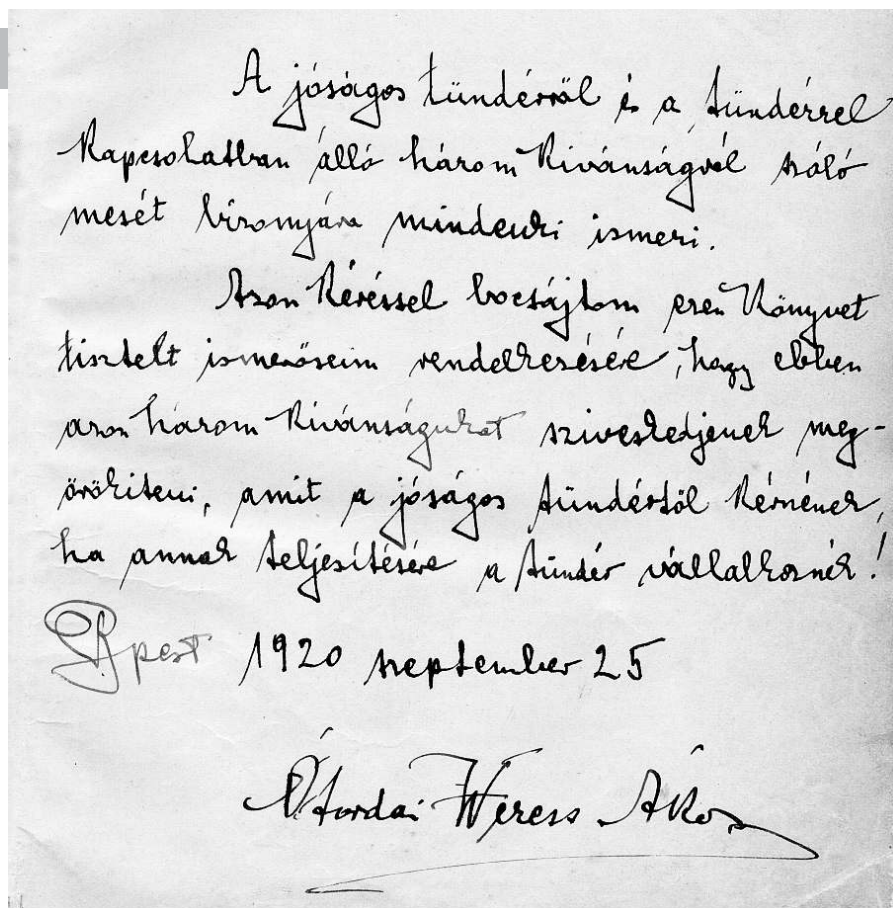 A jóságos tündérről és a tündérrel
kapcsolatban álló három kívánságról szóló
mesét bizonyára mindenki ismeri.
Azon kéréssel bocsájtom ezen könyvet
tisztelt ismerőseim rendelkezésére, hogy ebben
azon három kivánságukat sziveskedjenek meg-
örökiteni, amit a jóságos tündértől kérnének,
ha annak teljesítésére a tündér vállalkoznék!
Bpest 1920 szeptember 25
Ótordai Weress Ákos